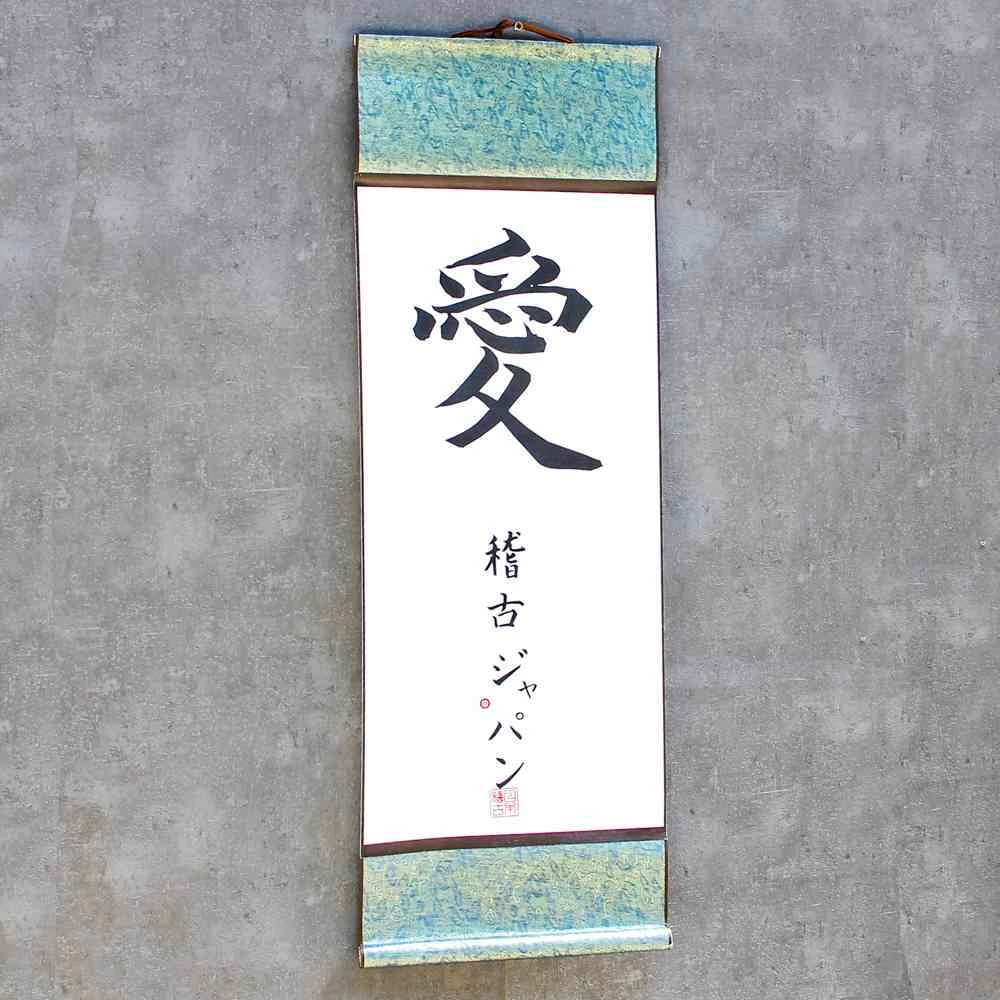 愛
稽古ジャパン